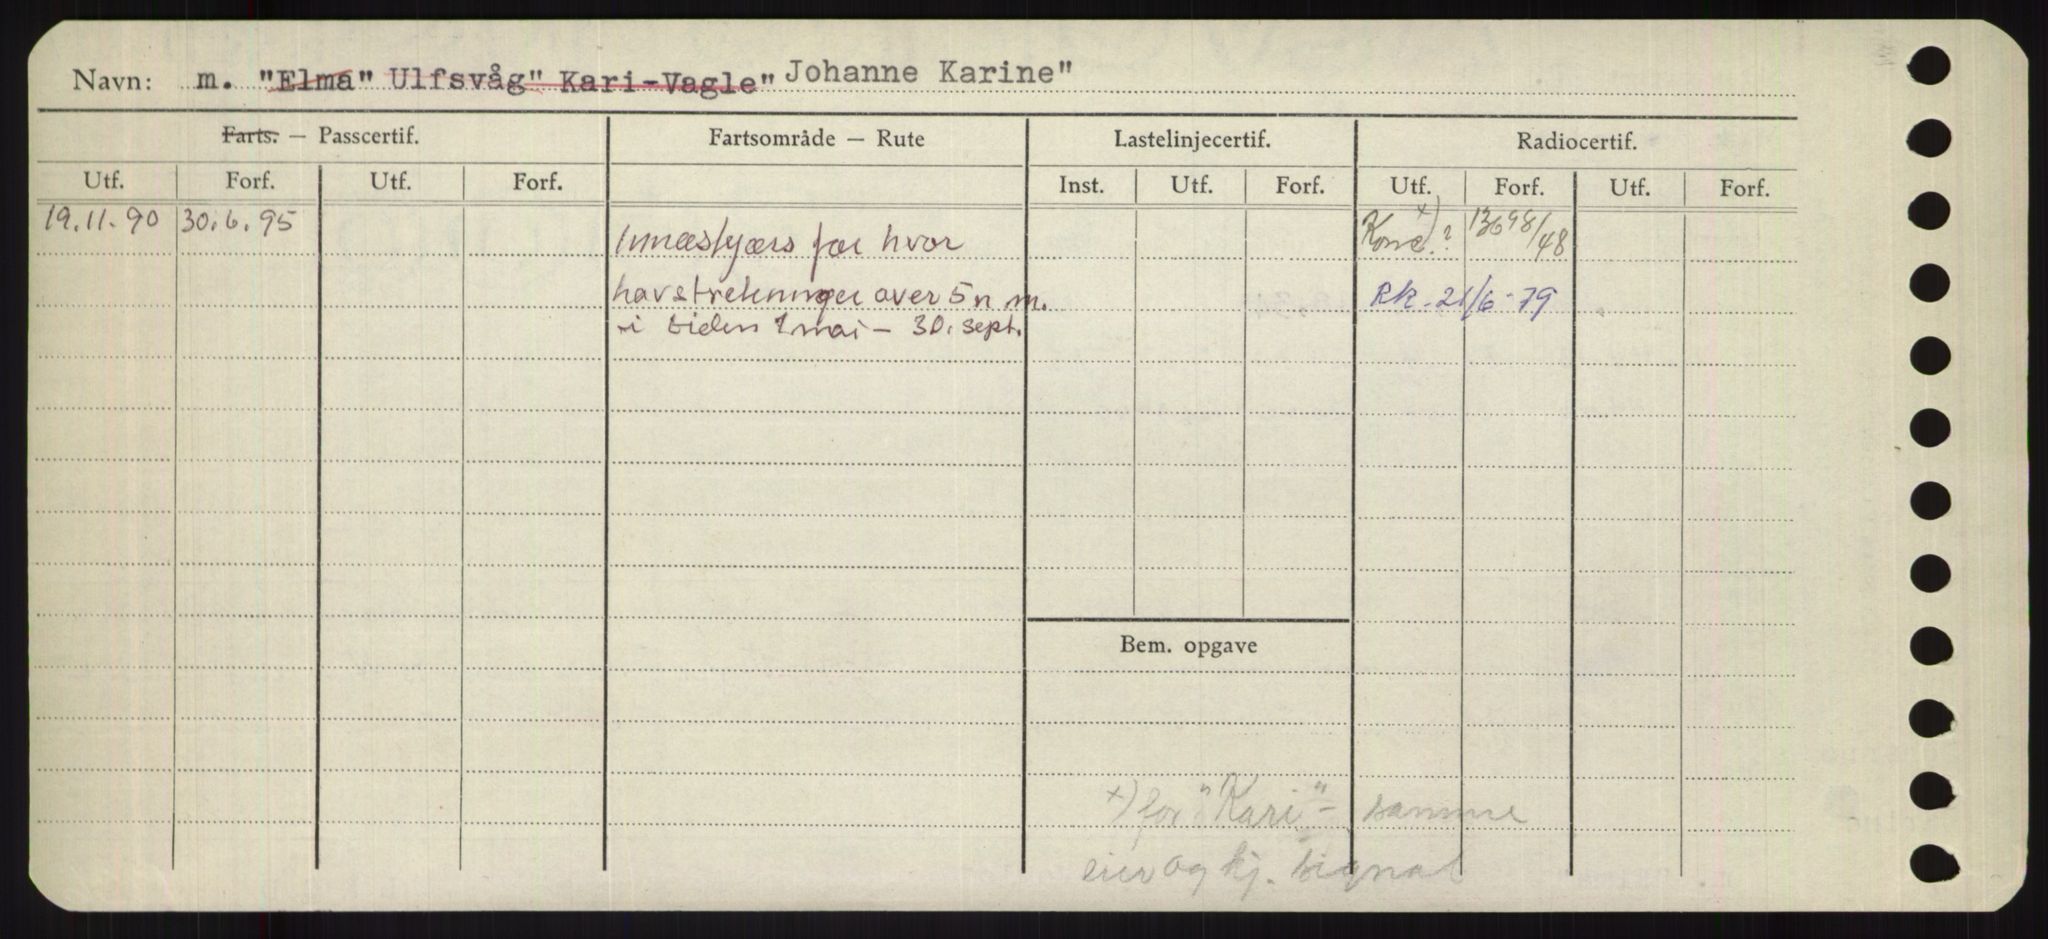 Navn: m. "Elma" Ulfsvåg" Kari-Vagle" Johanne Karine"
Farts. — Passcertif. Fartsområde — Rute Lastelinjecertif. Radiocertif.
Utf. Forf. Utf. Forf. Inst. Utf. Forf. Utf. Forf. Utf. Forf.
19.11.90 30.6.95 for hvor x) ? 13698/48
over 5 n. m. RK. 21/6-79
i tiden 1 mai – 30. sept.
Bem. opgave
x) for "Kari" – samme
eier og kj. signal